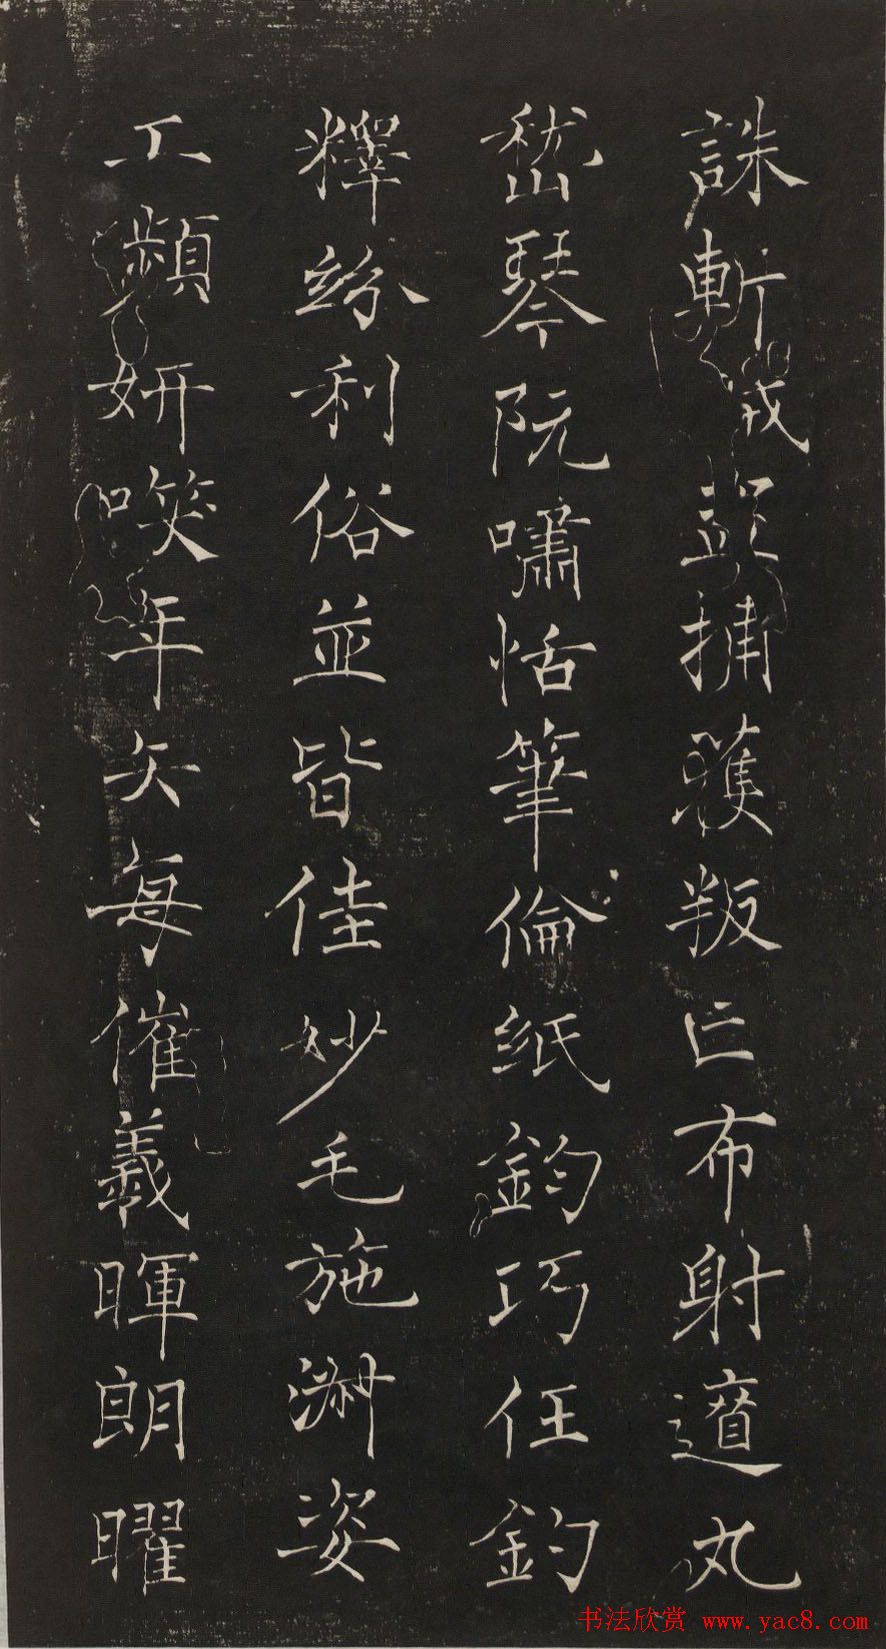 誅斬賊盜捕獲叛亡布射遼丸
嵇琴阮嘯恬筆倫紙鈞巧任釣
釋紛利俗並皆佳妙毛施淑姿
工頻妍㗛年矢每催羲暉朗曜
书法欣赏 www.yac8.com